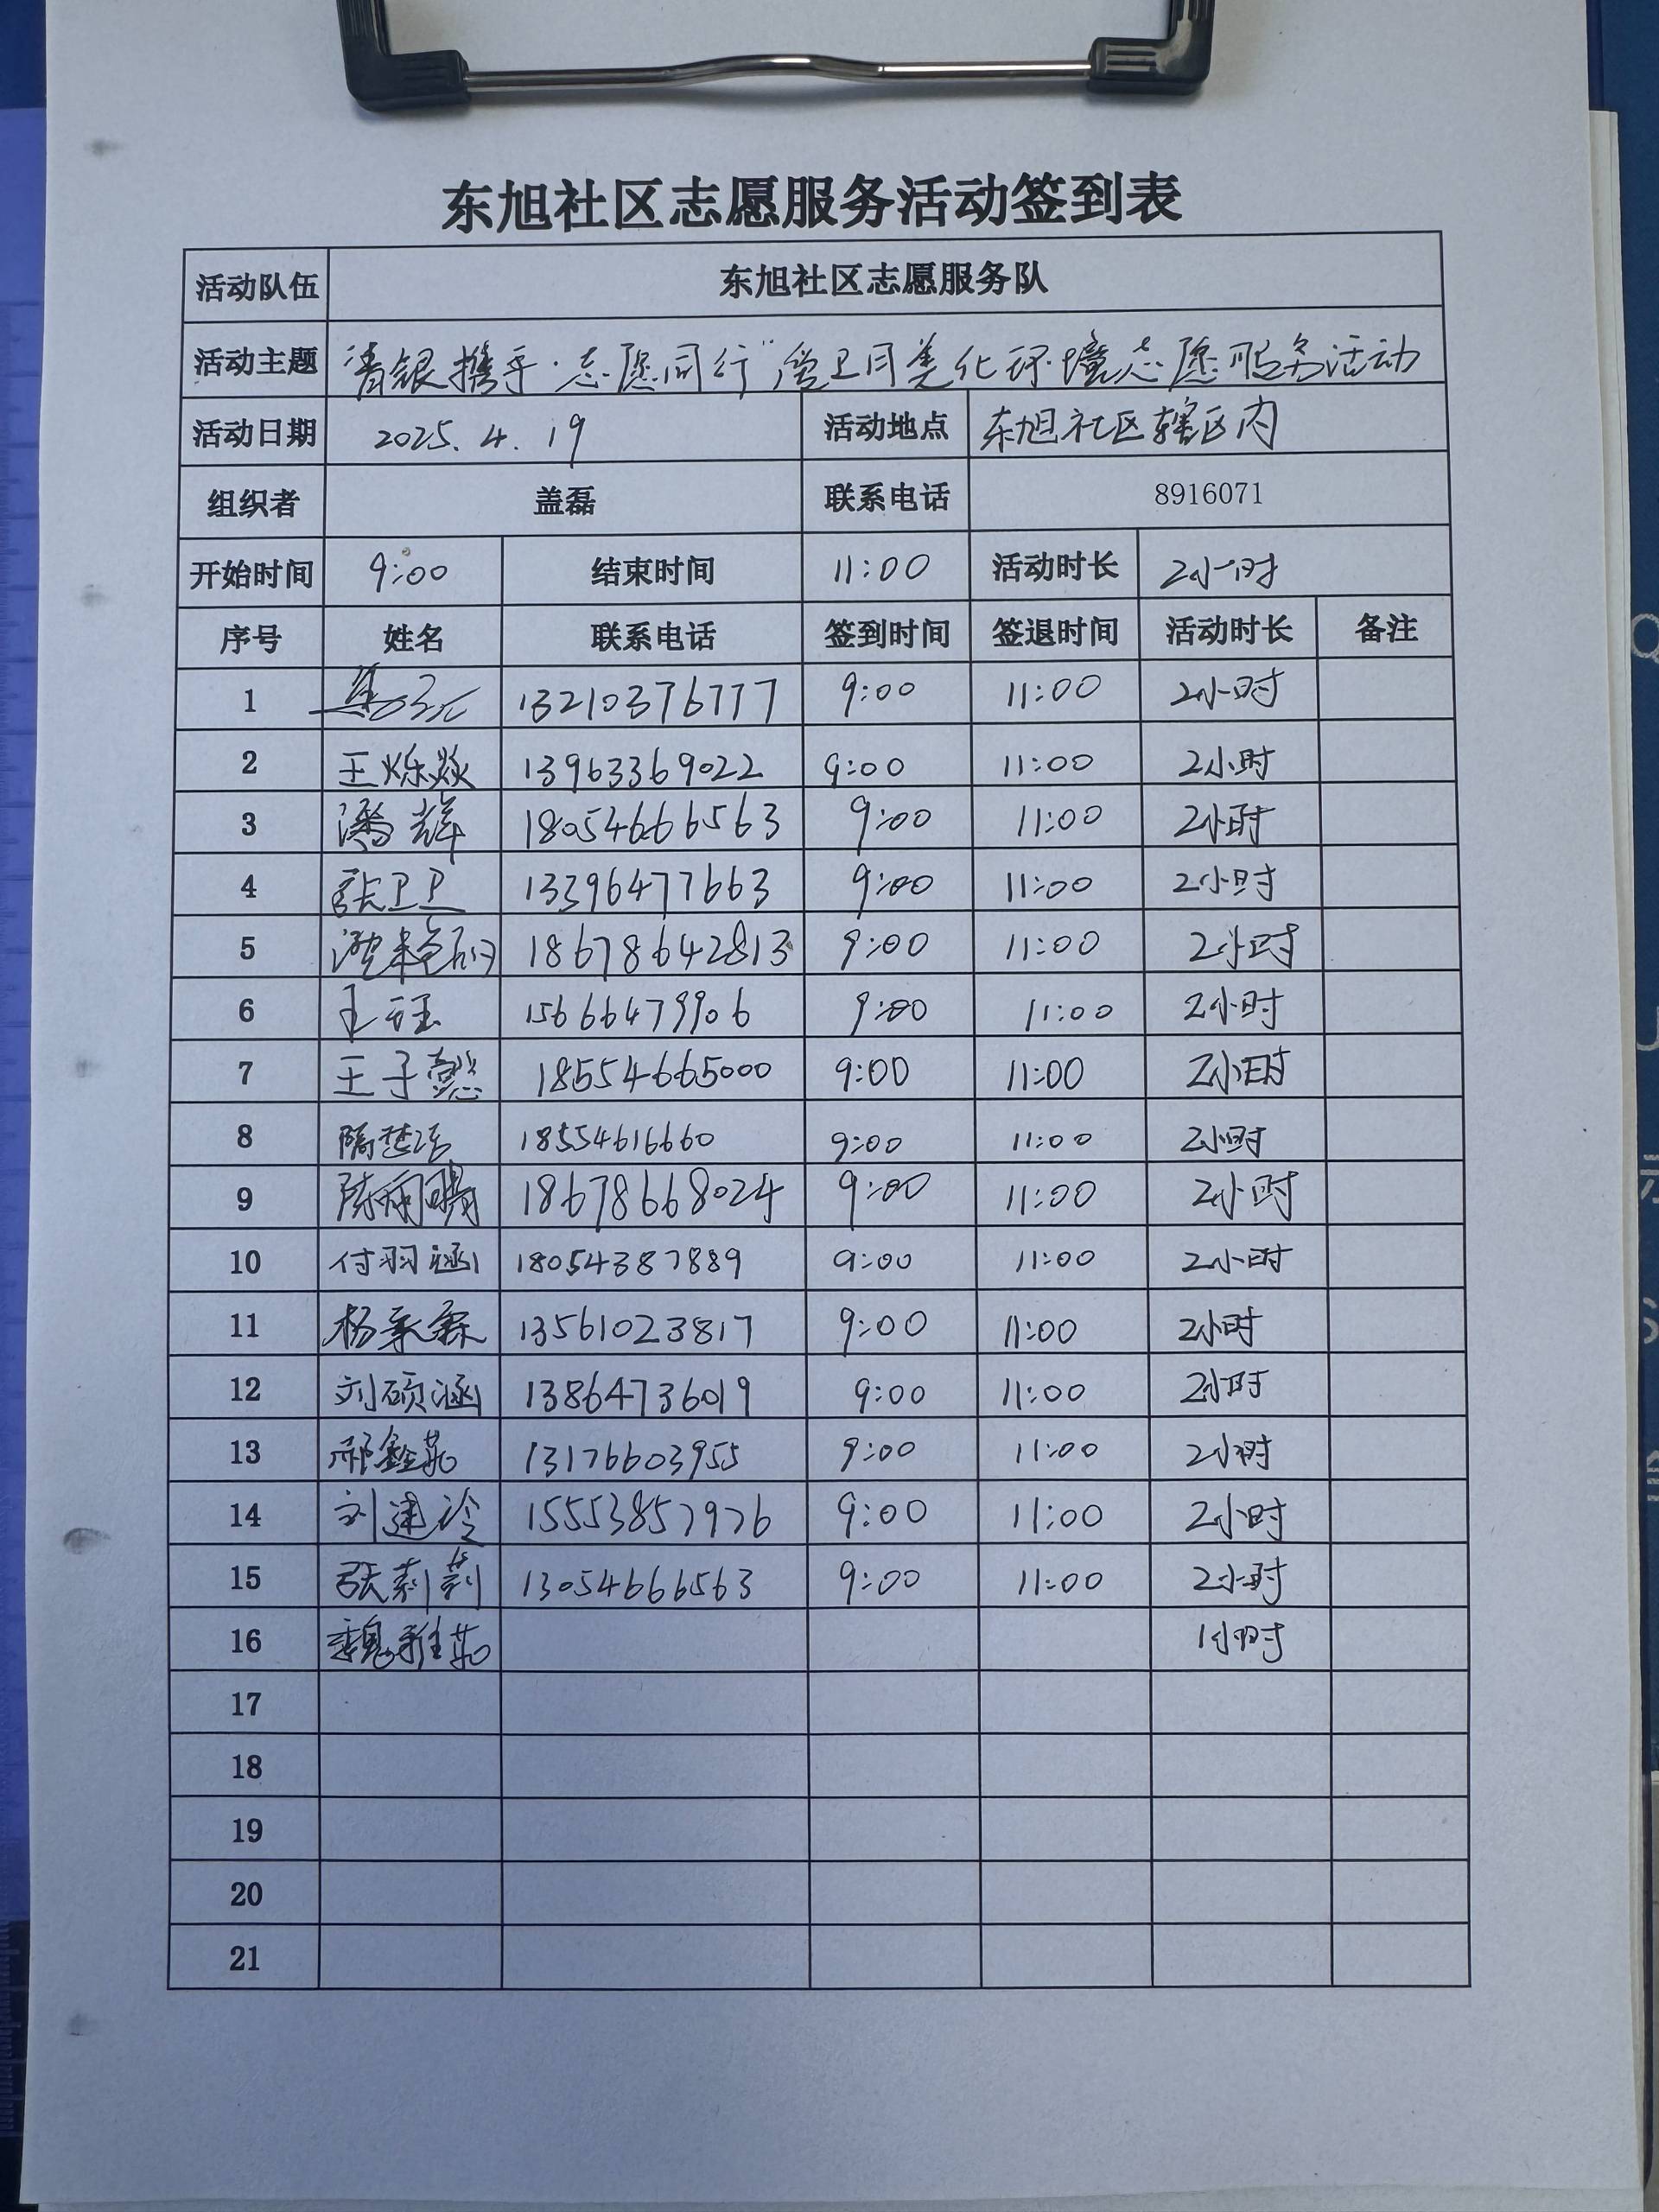 东旭社区志愿服务活动签到表
活动队伍 东旭社区志愿服务队
活动主题 青银携手·志愿同行"爱卫月美化环境志愿服务活动
活动日期 2025.4.19 活动地点 东旭社区辖区内
组织者 盖磊 联系电话 8916071
开始时间 9:00 结束时间 11:00 活动时长 2小时
序号 姓名 联系电话 签到时间 签退时间 活动时长 备注
1 13210376777 9:00 11:00 2小时
2 王烁焱 13963369022 9:00 11:00 2小时
3 潘辉 18054666563 9:00 11:00 2小时
4 张卫卫 13396477663 9:00 11:00 2小时
5 18678642813 9:00 11:00 2小时
6 王 15666479906 9:00 11:00 2小时
7 王子懿 18554665000 9:00 11:00 2小时
8 18554616660 9:00 11:00 2小时
9 陈 18678668024 9:00 11:00 2小时
10 付羽涵 18054387889 9:00 11:00 2小时
11 杨承霖 13561023817 9:00 11:00 2小时
12 刘硕涵 13864736019 9:00 11:00 2小时
13 13176603955 9:00 11:00 2小时
14 刘建泠 15553857976 9:00 11:00 2小时
15 张莉莉 13054666563 9:00 11:00 2小时
16 魏雅茹 1小时
17
18
19
20
21